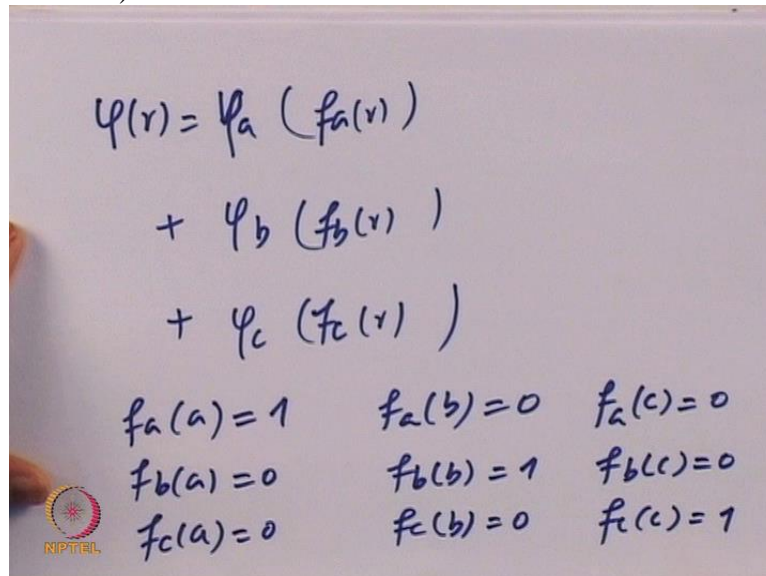 φ(r) = φa (fa(r))
+ φb (fb(r) )
+ φc (fc(r) )
fa(a) = 1 fa(b) = 0 fa(c) = 0
fb(a) = 0 fb(b) = 1 fb(c) = 0
fc(a) = 0 fc(b) = 0 fc(c) = 1
NPTEL